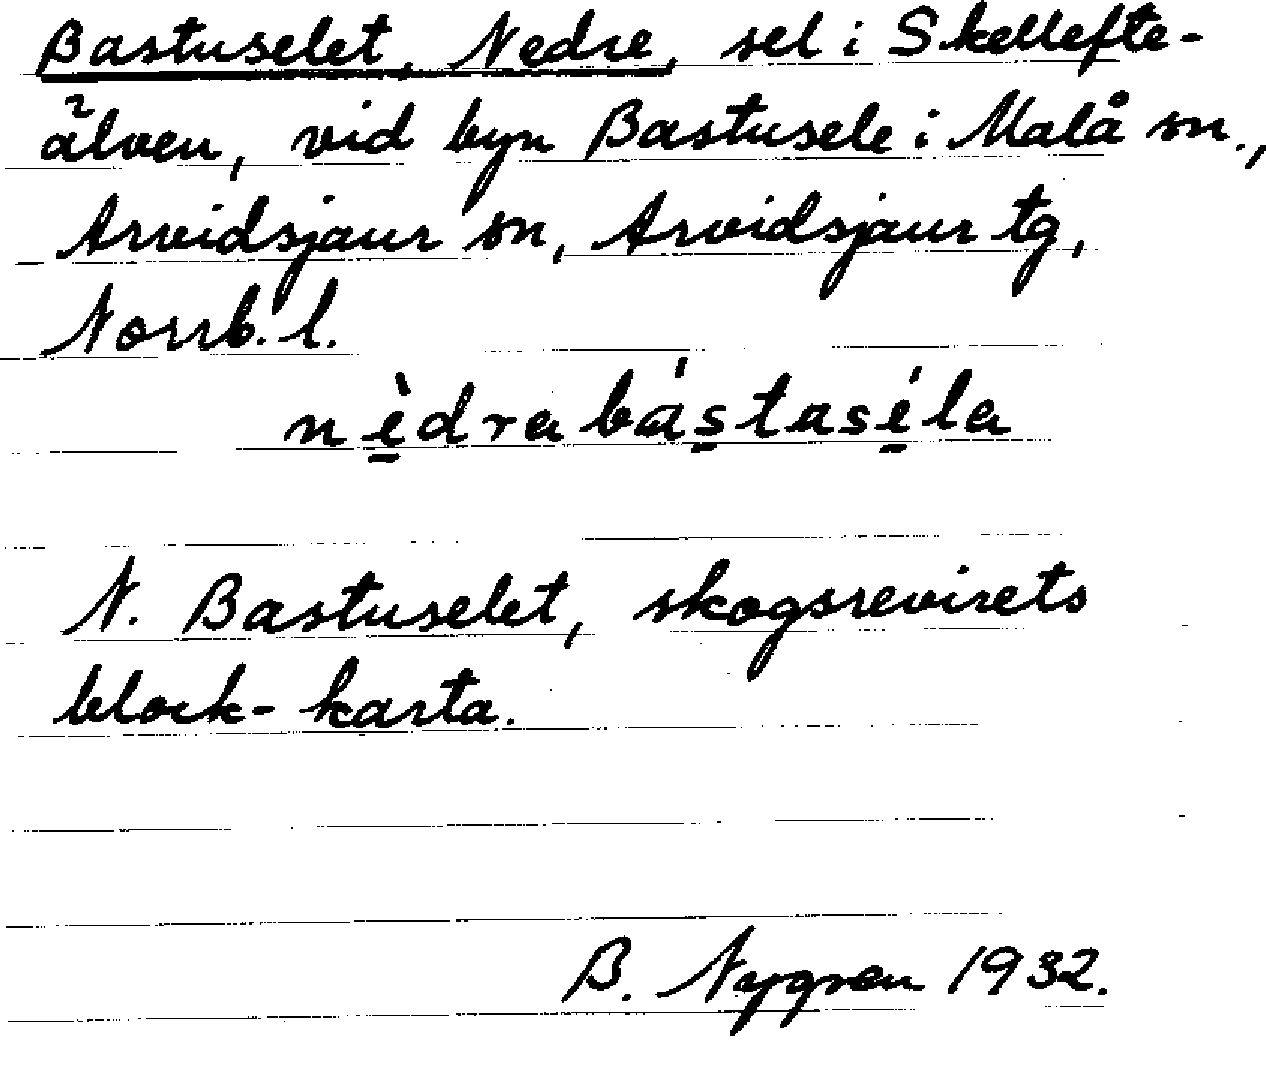 Bastuselet, Nedre, sel i Skellefte-
älven, vid byn Bastusele i Malå sn.,
Arvidsjaur sn, Arvidsjaur tg,
Norrb. l.
nè̱drabás̱tasé̱la
N. Bastuselet, skogsrevirets
block-karta.
B. Nygren 1932.